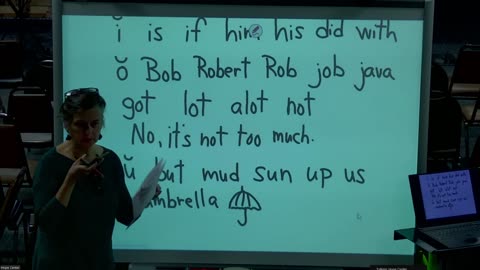 ĭ is if him his did with
ŏ Bob Robert Rob job java
got lot alot not
No, it's not too much.
ŭ but mud sun up us
umbrella